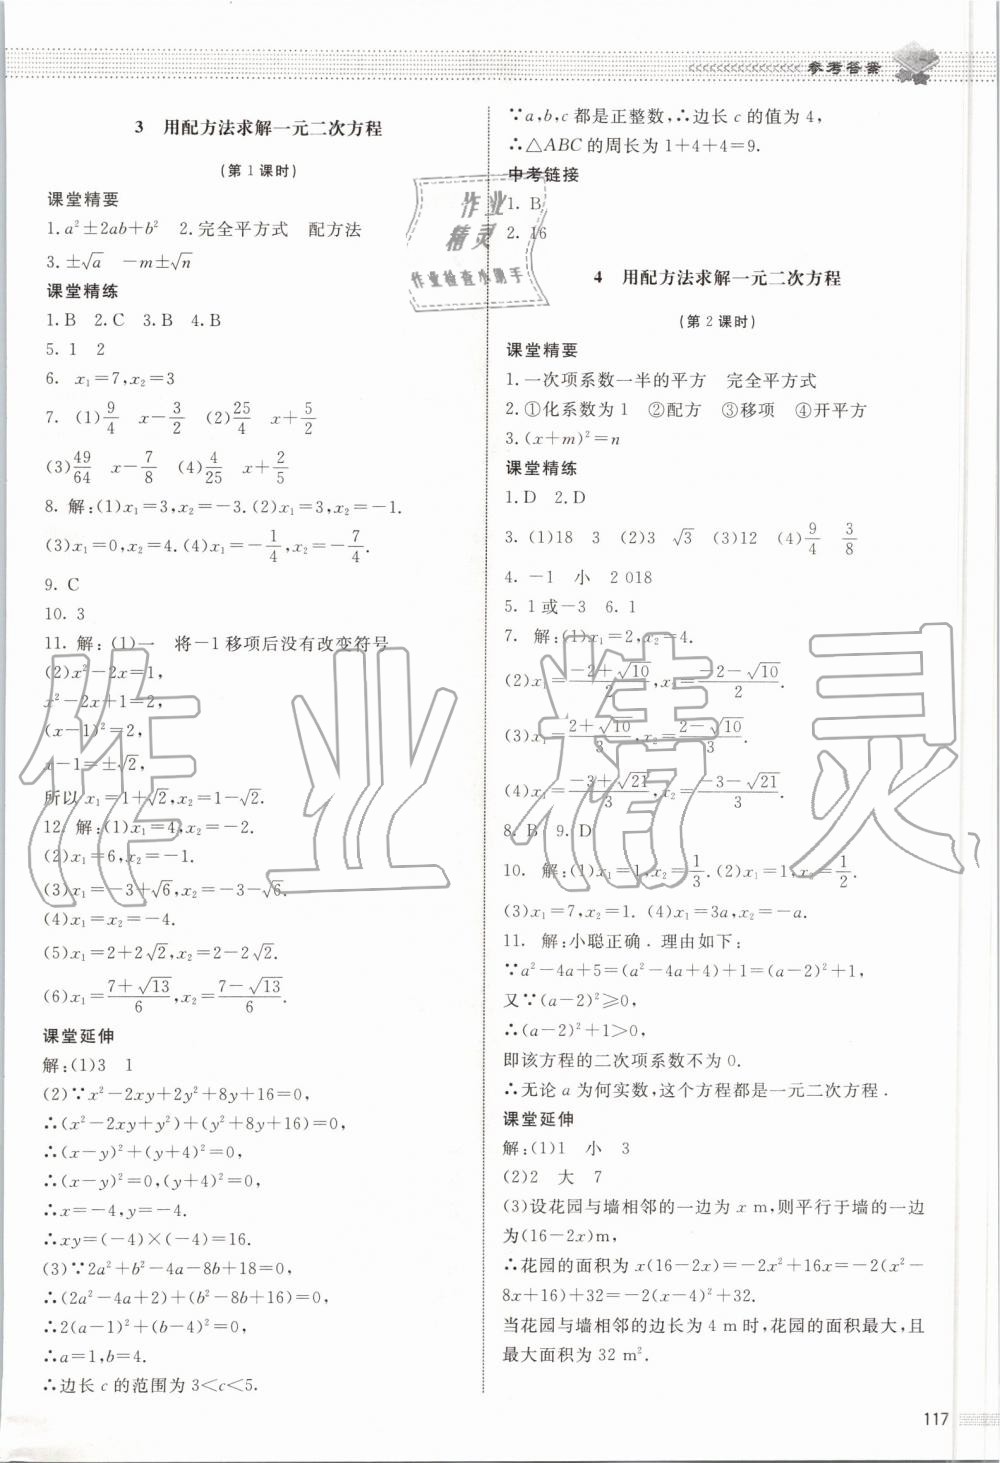 参考答案
3 用配方法求解一元二次方程
(第1课时)
课堂精要
1. a²±2ab+b² 2. 完全平方式 配方法
3. ±√a -m±√n
课堂精练
1. B 2. C 3. B 4. B
5. 1 2
6. x₁=7,x₂=3
7. (1)9/4 x-3/2 (2)25/4 x+5/2
(3)49/64 x-7/8 (4)4/25 x+2/5
8. 解:(1)x₁=3,x₂=-3. (2)x₁=3,x₂=-1.
(3)x₁=0,x₂=4. (4)x₁=-1/4,x₂=-7/4.
9. C
10. 3
11. 解:(1)一 将-1移项后没有改变符号
(2)x²-2x=1,
x²-2x+1=2,
(x-1)²=2,
x-1=±√2,
所以x₁=1+√2,x₂=1-√2.
12. 解:(1)x₁=4,x₂=-2.
(2)x₁=6,x₂=-1.
(3)x₁=-3+√6,x₂=-3-√6.
(4)x₁=x₂=-4.
(5)x₁=2+2√2,x₂=2-2√2.
(6)x₁=(7+√13)/6,x₂=(7-√13)/6.
课堂延伸
解:(1)3 1
(2)∵x²-2xy+2y²+8y+16=0,
∴(x²-2xy+y²)+(y²+8y+16)=0,
∴(x-y)²+(y+4)²=0,
∴(x-y)²=0,(y+4)²=0,
∴x=-4,y=-4.
∴xy=(-4)×(-4)=16.
(3)∵2a²+b²-4a-8b+18=0,
∴(2a²-4a+2)+(b²-8b+16)=0,
∴2(a-1)²+(b-4)²=0,
∴a=1,b=4.
∴边长c的范围为3<c<5.
∵a,b,c都是正整数,∴边长c的值为4,
∴△ABC的周长为1+4+4=9.
中考链接
1. B
2. 16
4 用配方法求解一元二次方程
(第2课时)
课堂精要
1. 一次项系数一半的平方 完全平方式
2. ①化系数为1 ②配方 ③移项 ④开平方
3. (x+m)²=n
课堂精练
1. D 2. D
3. (1)18 3 (2)3 √3 (3)12 (4)9/4 3/8
4. -1 小 2 018
5. 1或-3 6. 1
7. 解:(1)x₁=2,x₂=4.
(2)x₁=(-2+√10)/2,x₂=(-2-√10)/2.
(3)x₁=(2+√10)/3,x₂=(2-√10)/3.
(4)x₁=(-3+√21)/3,x₂=(-3-√21)/3.
8. B 9. D
10. 解:(1)x₁=1,x₂=1/3. (2)x₁=1,x₂=1/2.
(3)x₁=7,x₂=1. (4)x₁=3a,x₂=-a.
11. 解:小聪正确. 理由如下:
∵a²-4a+5=(a²-4a+4)+1=(a-2)²+1,
又∵(a-2)²≥0,
∴(a-2)²+1>0,
即该方程的二次项系数不为0.
∴无论a为何实数,这个方程都是一元二次方程.
课堂延伸
解:(1)1 小 3
(2)2 大 7
(3)设花园与墙相邻的一边为x m,则平行于墙的一边
为(16-2x)m,
∴花园的面积为x(16-2x)=-2x²+16x=-2(x²-
8x+16)+32=-2(x-4)²+32.
当花园与墙相邻的边长为4 m时,花园的面积最大,且
最大面积为32 m².
117
作业精灵
作业检查小助手
作业精灵